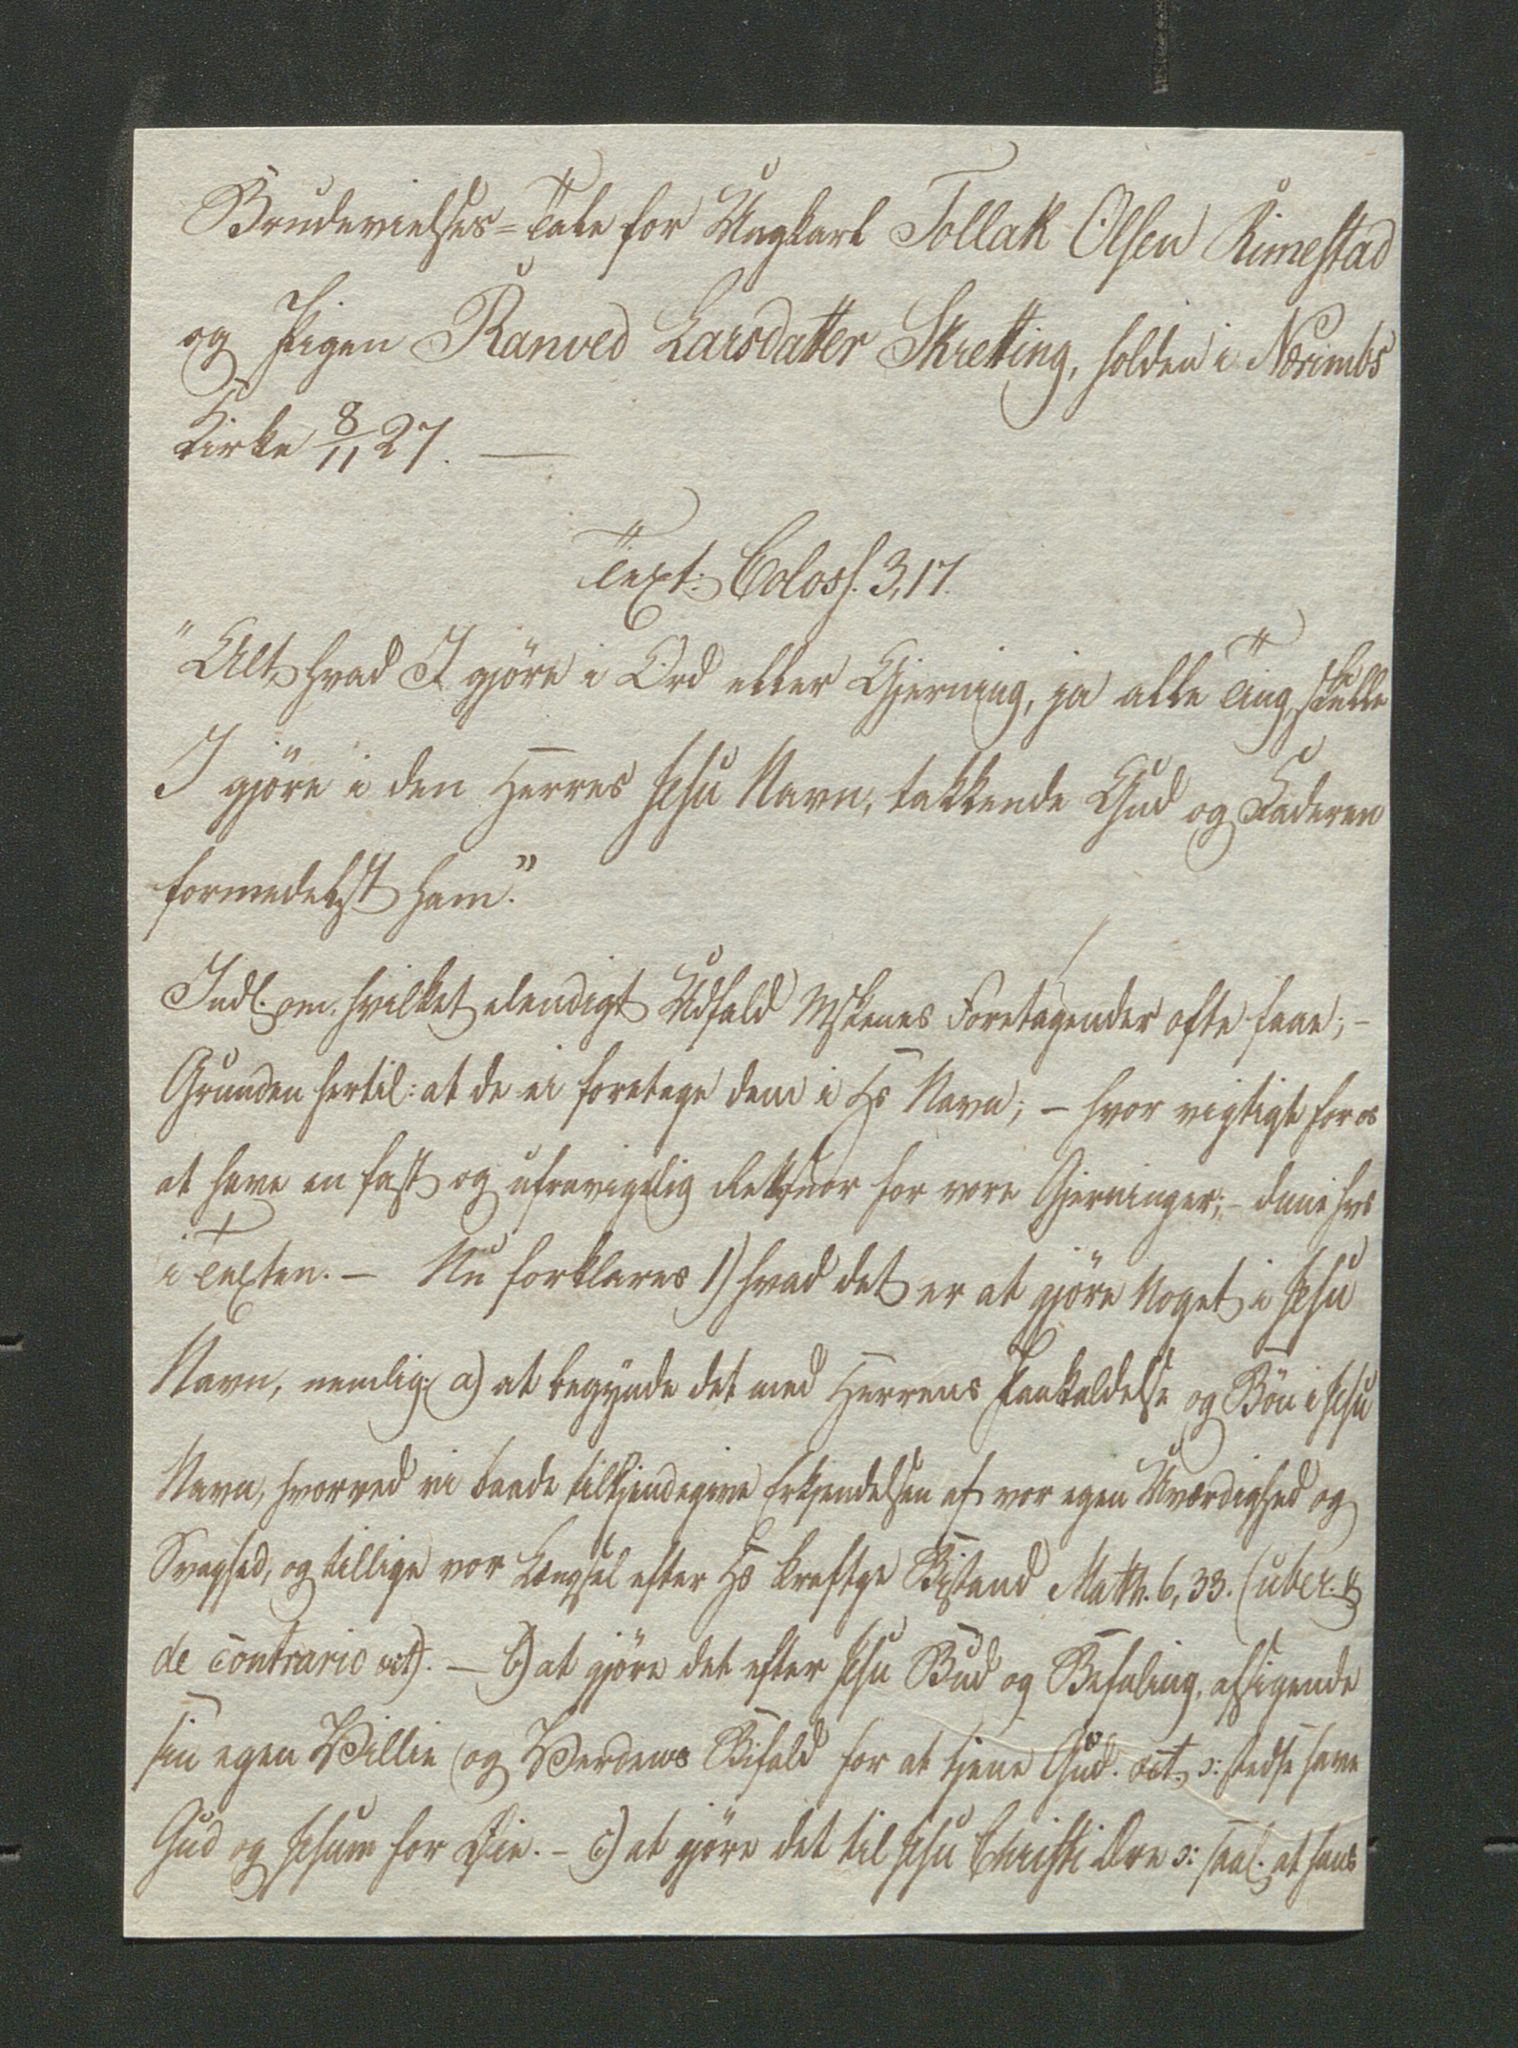 Brudevielses=Tale for Ungkarl Tollak Olsen Rimestad
og Pigen Ranved Larsdatter Skretting, holden i Nærimbs
Kirke 8/11 27. —
Text: Coloss. 3,17.
"Alt, hvad I gjøre i Ord eller Gjerning, ja alle Ting, skulle
I gjøre i den Herres Jesu Navn, takkende Gud og Faderen
formedelst ham."
Indl. om, hvilket elendigt Udfald Mskenes Foretagender ofte faae; –
Grunden hertil: at de ei foretage dem i Hs Navn; – hvor vigtigt for os
at have en fast og ufravigelig Rettesnor for vore Gjerninger; – denne hvs
i Texten. – Nu forklares 1) hvad det er at gjøre Noget i Jesu
Navn, nemlig: a) at begynde det med Herrens Paakaldelse og Bøn i Jesu
Navn, hvorved vi baade tilkjendegive Erkjendelsen af vor egen Uværdighed og
Svaghed, og tillige vor Længsel efter Hs kraftige Bistand Matth. 6, 33. (uber. &
de contrario ect). – b) at gjøre det efter Jesu Bud og Befaling, afsigende
sin egen Villie og Verdens Bifald for at tjene Gud. ect. ɔ: stedse have
Gud og Jesum for Øie. – c) at gjøre det til Jesu Christi Ære ɔ: saal. at hans